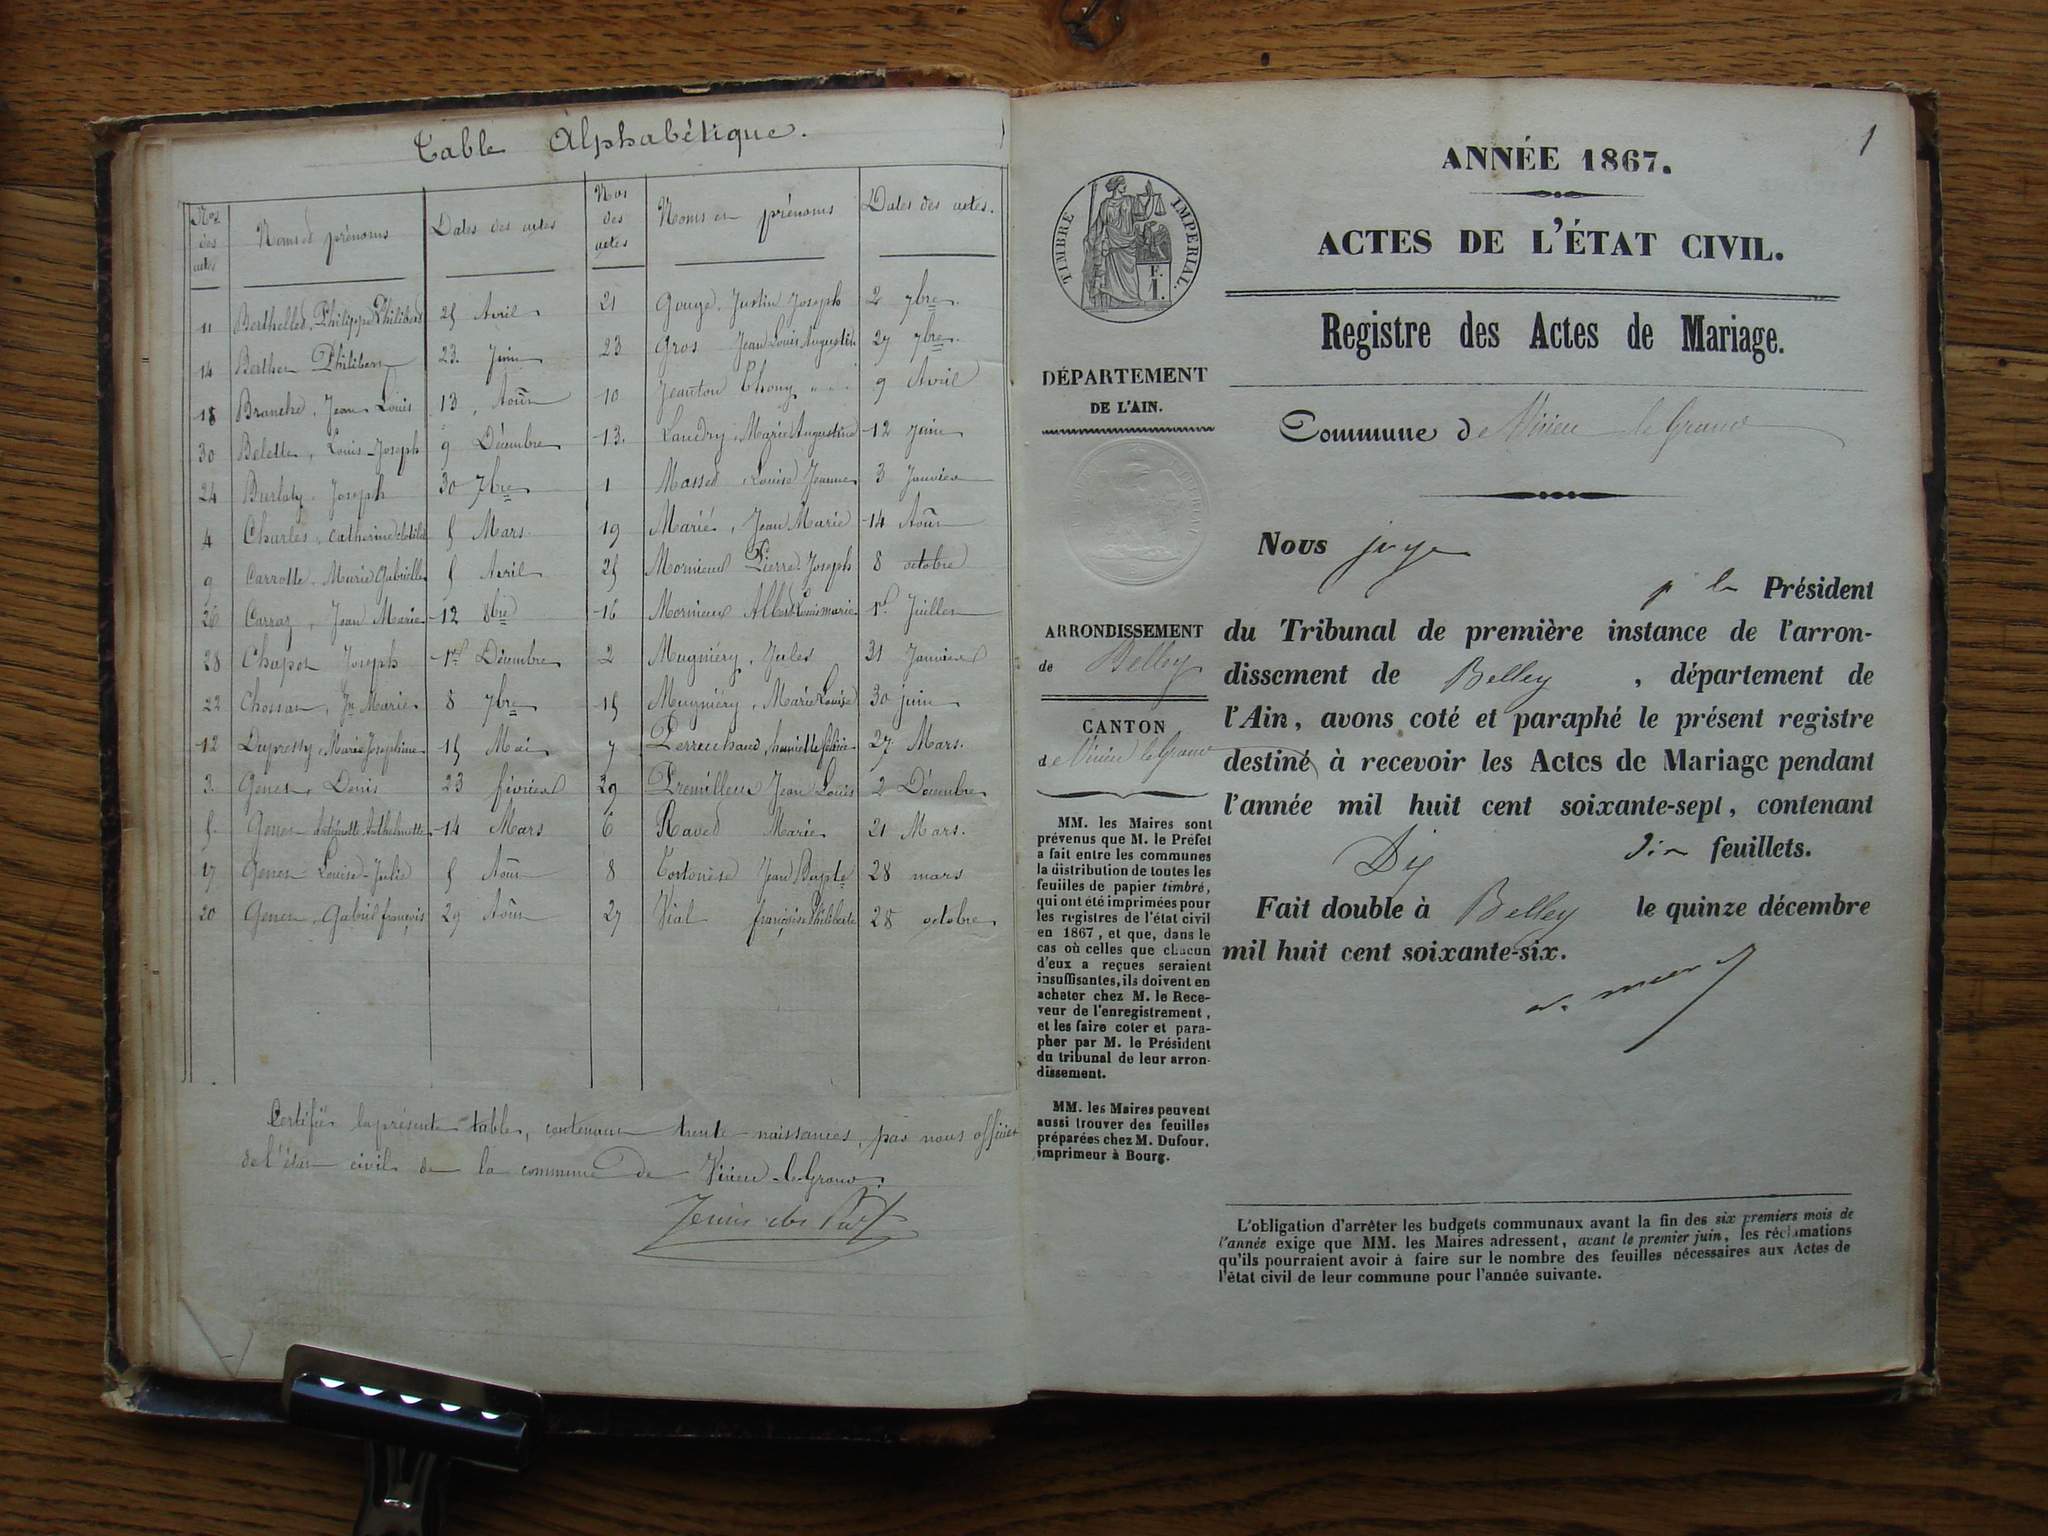 Table Alphabétique.
Nos des actes
Noms et prénoms
Dates des actes
Nos des actes
Noms et prénoms
Dates des actes.
11 Berthellet, Philippe Philibert 25 Avril
14 Berthet Philibert 23. Juin
18 Branche, Jean Louis 13, Août
30 Belette, Louis-Joseph 9 Décembre
24 Burlaty Joseph 30 7bre
4 Charles, Catherine Clotilde 5 Mars.
9 Carrotte, Marie Gabrielle 5 Avril
26 Carraz, Jean Marie 12 8bre
28 Chapot Joseph 1er Décembre
22 Chossat, Jn Marie 8 7bre
12 Marie Josephine 15 Mai
3. Genet, Denis 23 février
5. Genet Antoinette Anthelmette 14 Mars
17 Genet Louise-Julie 5 Août
20 Genet, Gabriel françois 29 Août
21 Gouge, Justin Joseph 2 7bre.
23 Gros Jean Louis Augustin 27 7bre.
10 Jeanton Thony 9 Avril
13. Landry, Marie Augustine 12 Juin
1 Masset, Louise Jeanne 3 Janvier
19 Marié, Jean Marie 14 Août
25 Mornieux Pierre Joseph 8 octobre
16 Mornieux Albert Louis marie 1er Juillet
2 Mugniéry, Jules 31 Janvier
15 Mugniéry, Marie Louise 30 juin
7 27 Mars.
29 Premilleux Jean Louis 2 Décembre
6 Ravet Marie 21 Mars.
8 Jean Bapte 28 mars
27 Vial françoise Philiberte 28 octobre
Certifié la présente table, contenant trente naissances, par nous officier
de l'état civil de la commune de Virieu-le-Grand.
1
ANNÉE 1867.
ACTES DE L'ÉTAT CIVIL.
Registre des Actes de Mariage.
Commune de Virieu le Grand
TIMBRE IMPERIAL.
F. 1.
DÉPARTEMENT
DE L'AIN.
ARRONDISSEMENT
de Belley
CANTON
de Virieu le Grand
MM. les Maires sont
prévenus que M. le Préfet
a fait entre les communes
la distribution de toutes les
feuilles de papier timbré,
qui ont été imprimées pour
les registres de l'état civil
en 1867, et que, dans le
cas où celles que chacun
d'eux a reçues seraient
insuffisantes, ils doivent en
acheter chez M. le Rece-
veur de l'enregistrement,
et les faire coter et para-
pher par M. le Président
du tribunal de leur arron-
dissement.
MM. les Maires peuvent
aussi trouver des feuilles
préparées chez M. Dufour,
imprimeur à Bourg.
Nous juge
p le Président
du Tribunal de première instance de l'arron-
dissement de Belley, département de
l'Ain, avons coté et paraphé le présent registre
destiné à recevoir les Actes de Mariage pendant
l'année mil huit cent soixante-sept, contenant
Dix feuillets.
Fait double à Belley le quinze décembre
mil huit cent soixante-six.
L'obligation d'arrêter les budgets communaux avant la fin des six premiers mois de
l'année exige que MM. les Maires adressent, avant le premier juin, les réclamations
qu'ils pourraient avoir à faire sur le nombre des feuilles nécessaires aux Actes de
l'état civil de leur commune pour l'année suivante.